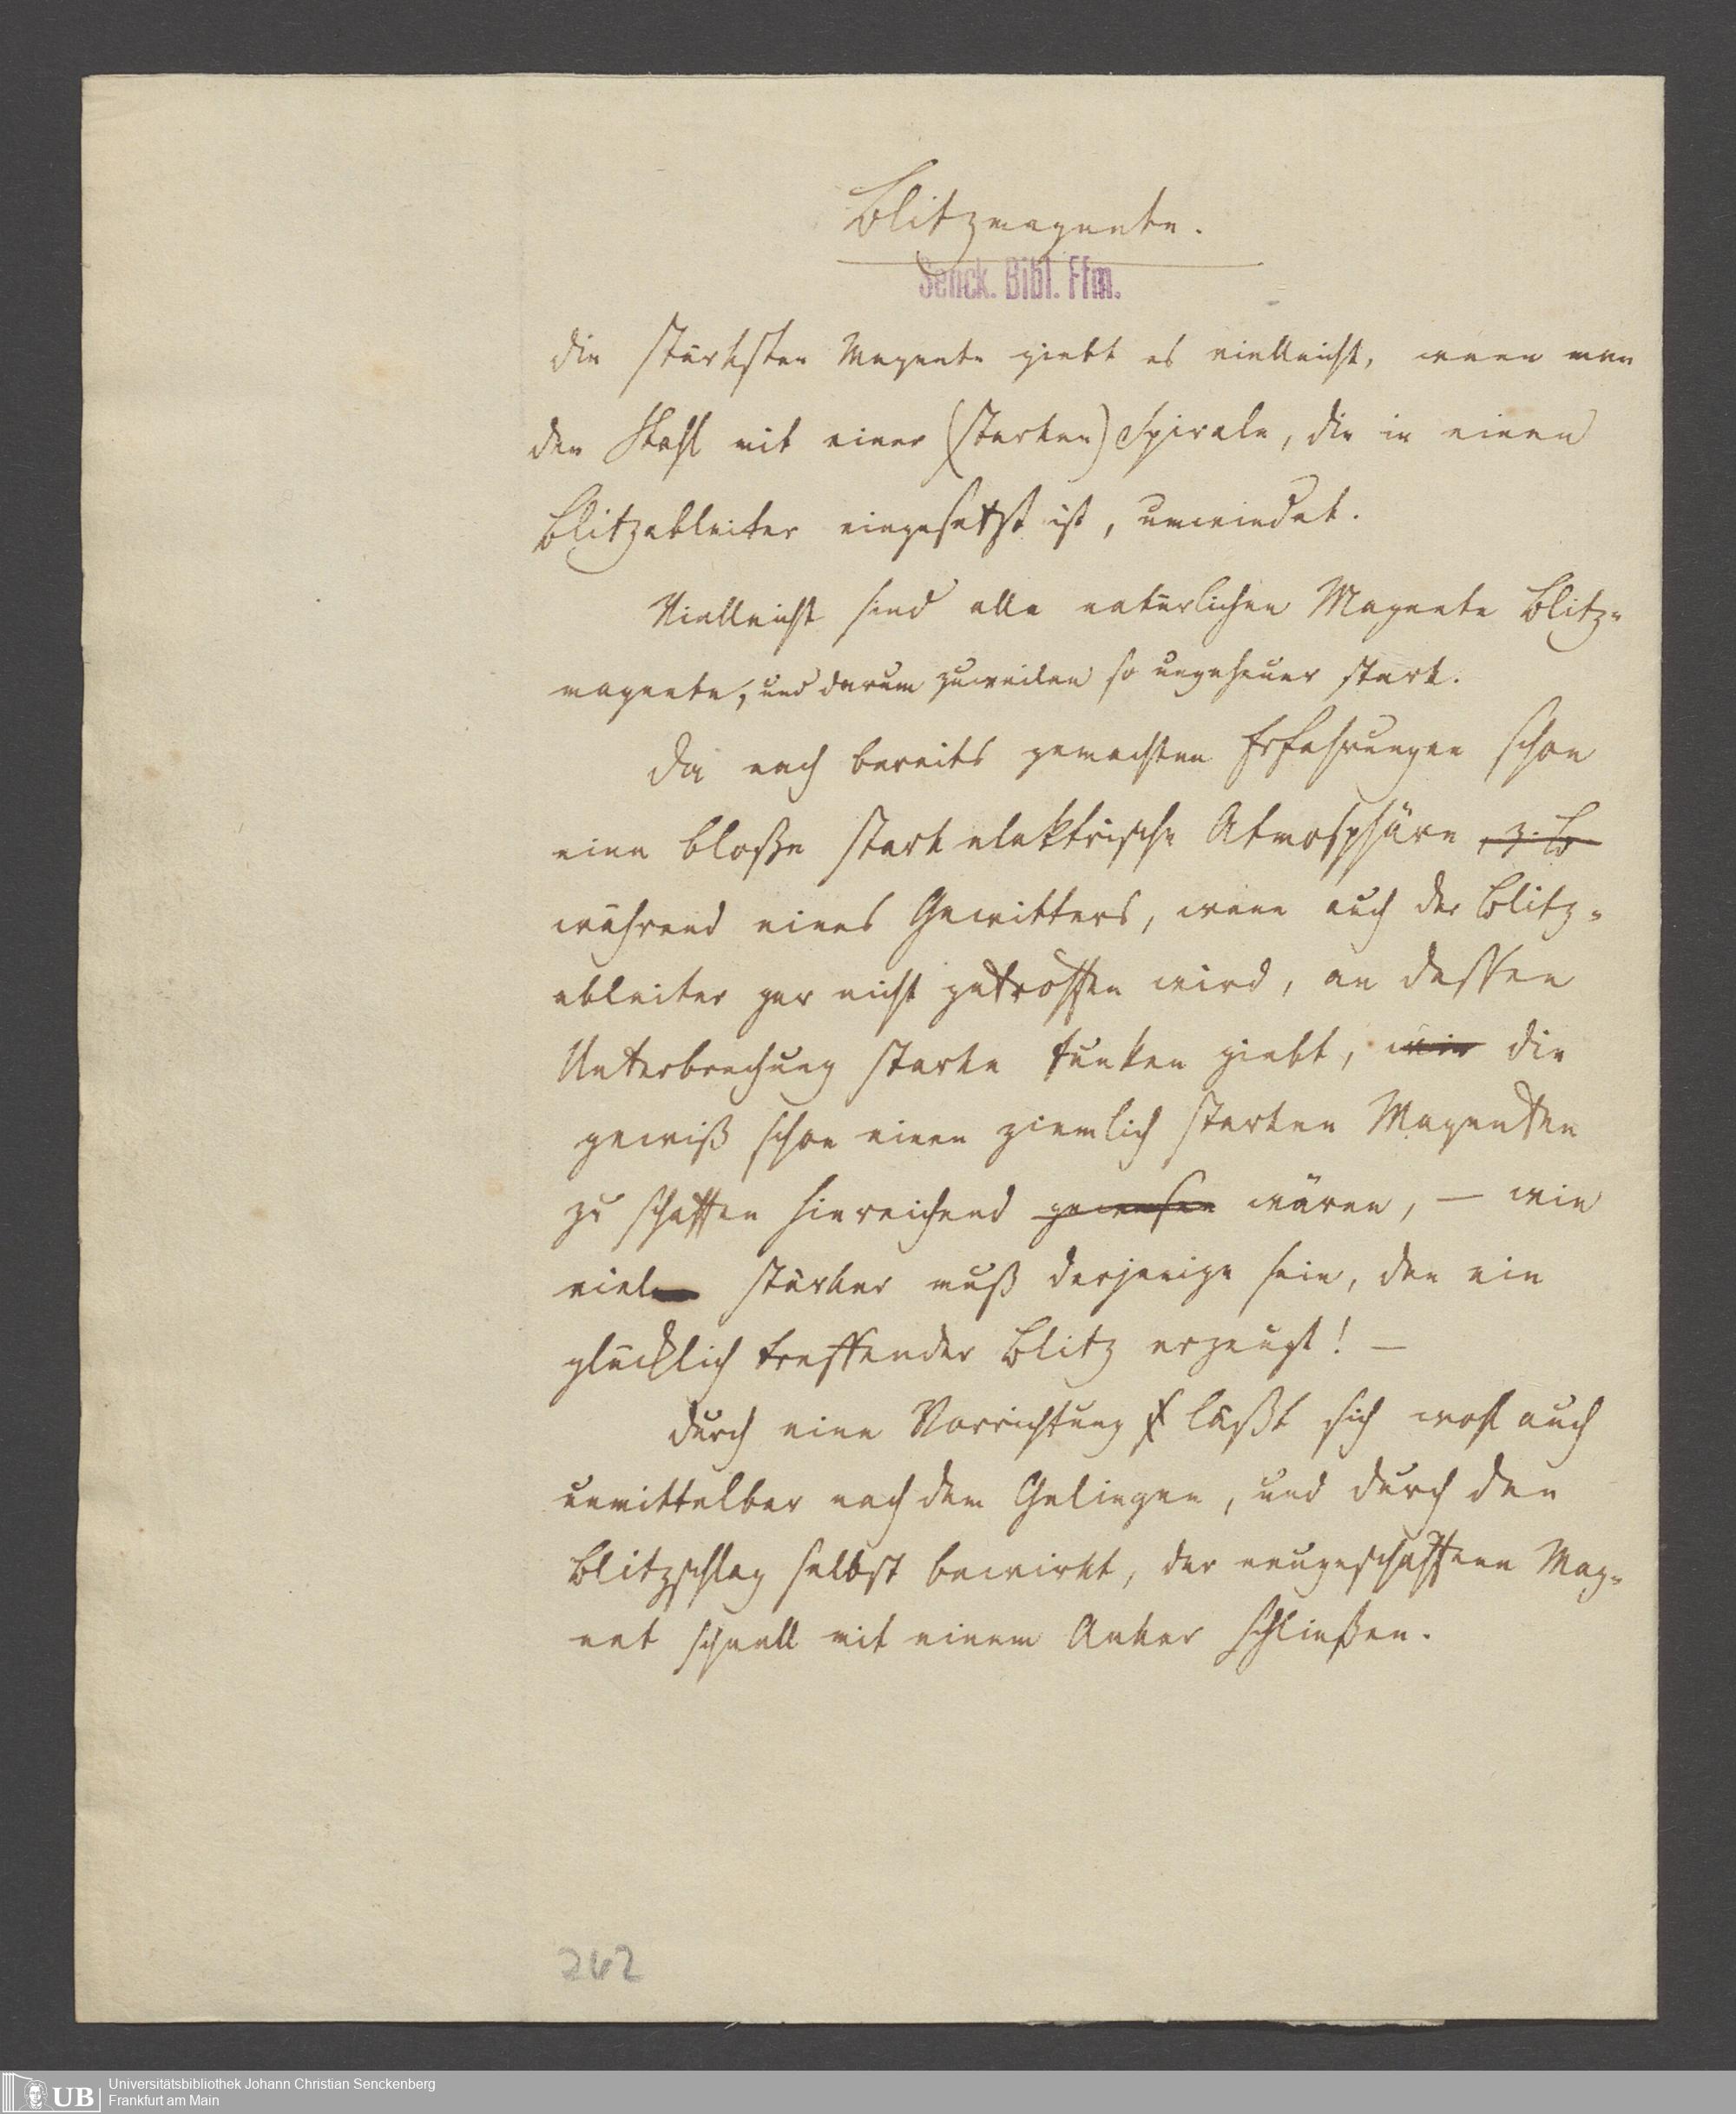 Blitzmagnete.
Senck. Bibl. Ffm.
die stärksten Magnete giebt es vielleicht, wenn man
den Stahl mit einer (starken) Spirale, die in einen
Blitzableiter eingesetzt ist, umwindet.
Vielleicht sind alle natürlichen Magnete Blitz-
magnete, und darum zuweilen so ungeheuer stark.
Da nach bereits gemachten Erfahrungen schon
eine bloße stark elektrische Atmosphäre , z. B
während eines Gewitters, wenn auch der Blitz-
ableiter gar nicht getroffen wird, an dessen
Unterbrechung starke Funken giebt, wie die
gewiß schon einen ziemlich starken Magneten
zu schaffen hinreichend gewesen wären, — wie
viel stärker muß derjenige sein, den ein
glücklich treffender Blitz erzeugt! —
durch eine Vorrichtung läßt sich wohl auch
unmittelbar nach dem Gelingen, und durch den
Blitzschlag selbst bewirkt, der neugeschaffene Mag-
net schnell mit einem Anker schließen.
262
UB
Universitätsbibliothek Johann Christian Senckenberg
Frankfurt am Main